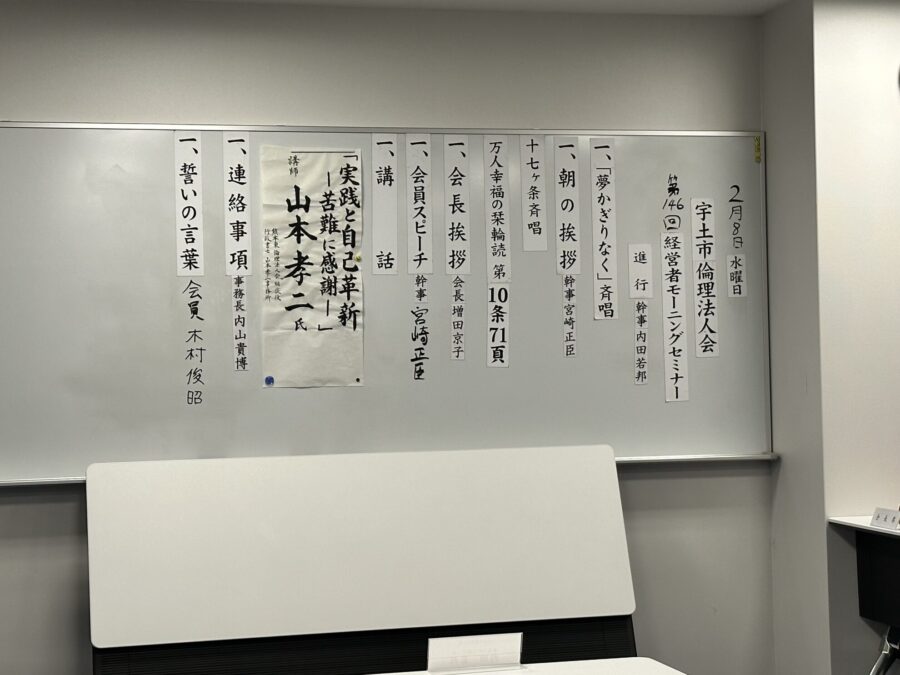 2月8日 水曜日
宇土市倫理法人会
第146回 経営者モーニングセミナー
進行 幹事 内田若邦
一、「夢かぎりなく」斉唱
一、朝の挨拶 幹事 宮崎正臣
十七ヶ条斉唱
万人幸福の栞輪読 第10条71頁
一、会長挨拶 会長 増田京子
一、会員スピーチ 幹事 宮崎正臣
一、講話
「実践と自己革新
―苦難に感謝―」
講師 山本孝二 氏
一、連絡事項 事務長 内山貴博
一、誓いの言葉 会員 木村俊昭